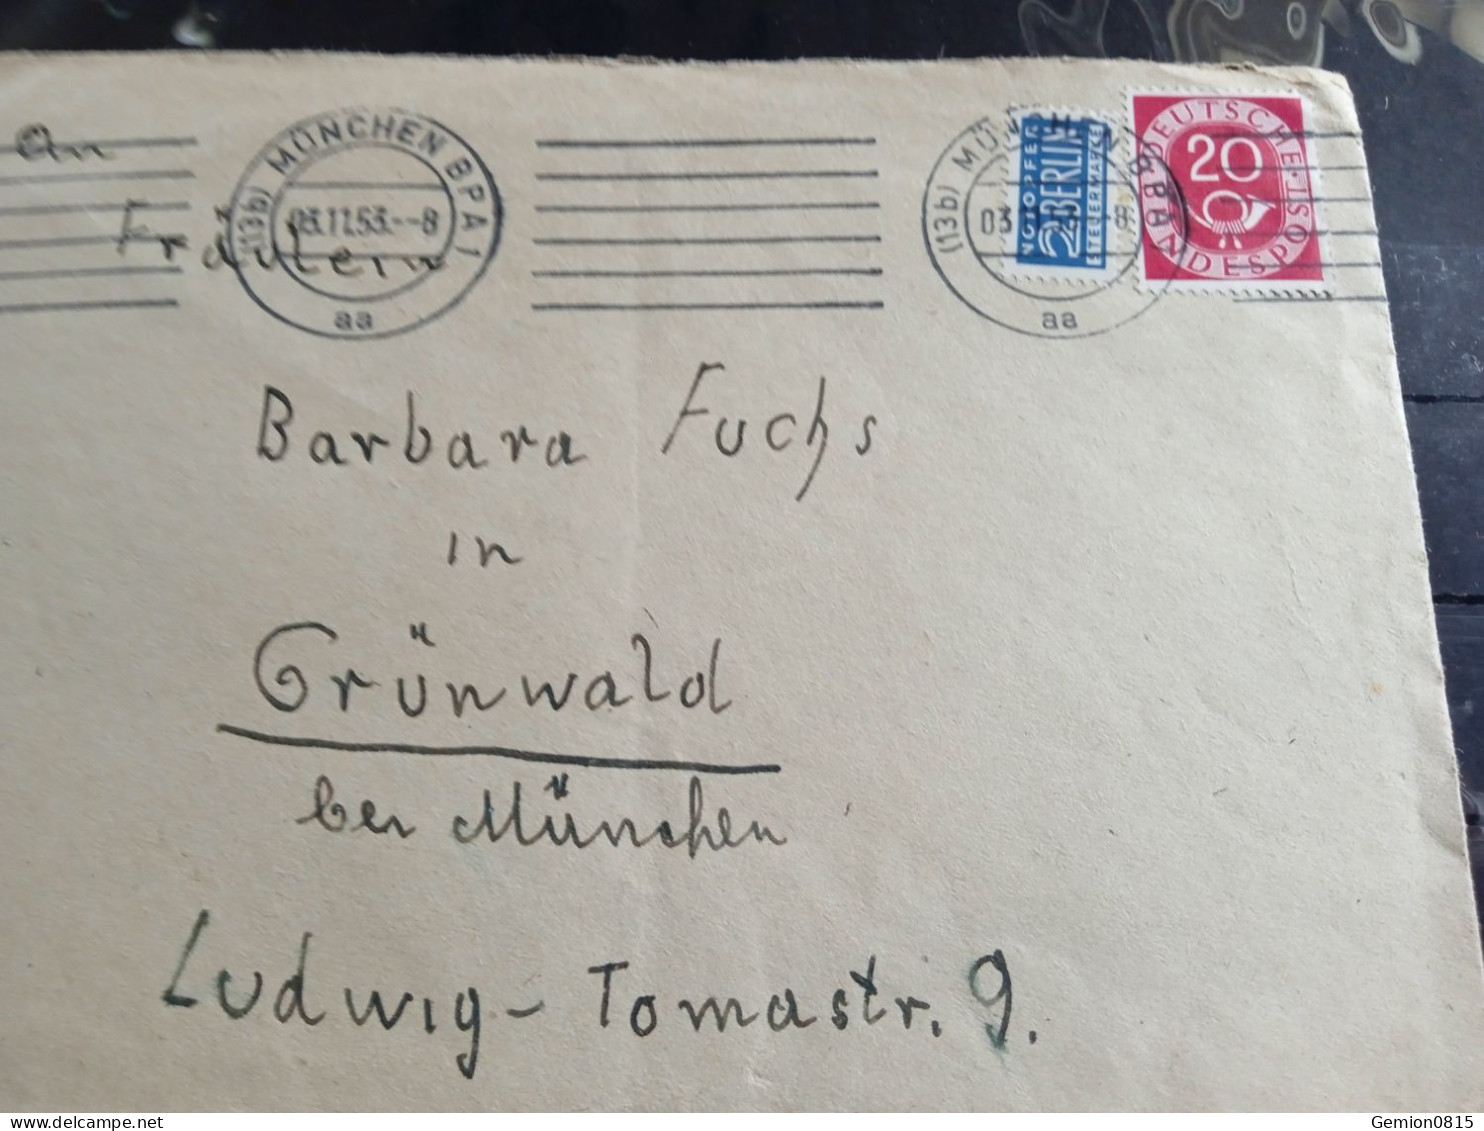 An
Fräulein
Barbara Fuchs
in
Grünwald
bei München
Ludwig-Tomastr. 9.
(13b) MÜNCHEN BPA 1
03.11.53.--8
aa
(13b) MÜNCHEN BPA
03.11.53.--8
aa
NOTOPFER
2 BERLIN
STEUERMARKE
DEUTSCHE BUNDESPOST
20
Gemion0815